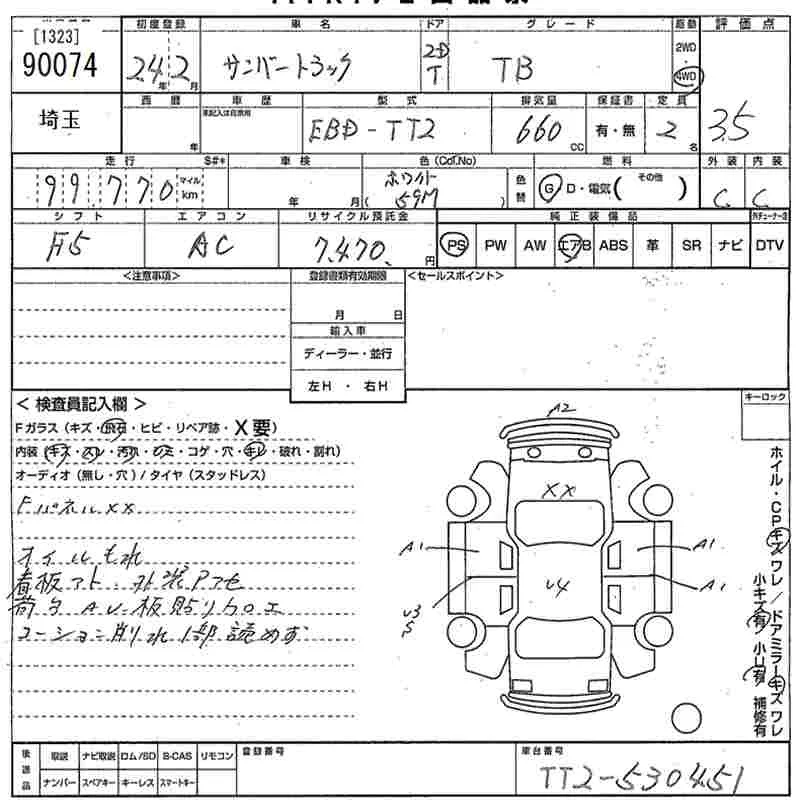 [1323]
90074
初度登録 車名 ドア グレード 駆動 評価点
24年2月 サンバートラック 2-D T TB 2WD 4WD
埼玉
西暦 車歴 型式 排気量 保証書 定員
年 未記入は自家用 EBD-TT2 660 CC 有・無 2名 3.5
走行 S#* 車検 色(Col.No) 燃料 外装 内装
99,770 マイル km 年 月 ホワイト (59M) 色替 G D・電気( その他 ) C C
シフト エアコン リサイクル預託金 純正装備品
F5 AC 7,470 円 PS PW AW エアB ABS 革 SR ナビ DTV
<注意事項> 登録書類有効期限 <セールスポイント>
月 日
輸入車
ディーラー・並行
左H ・ 右H
<検査員記入欄> キーロック
Fガラス(キズ・飛石・ヒビ・リペア跡・X要)
内装(キズ・スレ・汚れ・シミ・コゲ・穴・キレ・破れ・割れ)
オーディオ(無し・穴)/タイヤ(スタッドレス)
Fパネルxx
オイルもれ
看板アト・外装Pアセ
荷台AU・板貼り加工
コーション削れ1部読めず
A2
XX
A1 A1
U4 A1
U3
S
ホイル・CPキズ ワレ/ドアミラーキズ ワレ
小キズ有 小U有 補修有
後送品 取説 ナビ取説 ロム/SD B-CAS リモコン 登録番号 車台番号
ナンバー スペアキー キーレス スマートキー TT2-530451